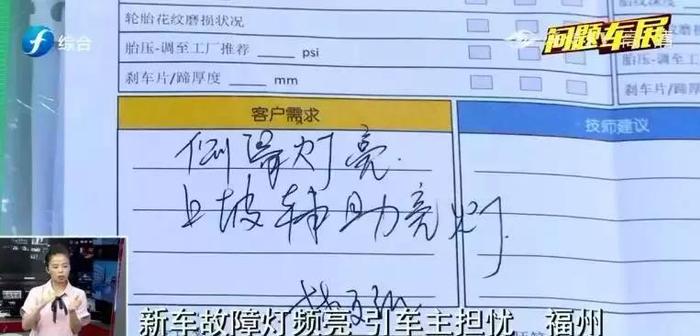 轮胎花纹磨损状况
轮胎花纹磨
综合
问题车展
胎压-调至工厂推荐 ____ psi
胎压-调至
刹车片/蹄厚度 ____ mm
刹车片/蹄厚
客户需求
技师建议
灯亮
上坡辅助亮灯
新车故障灯频亮 引车主担忧 福州